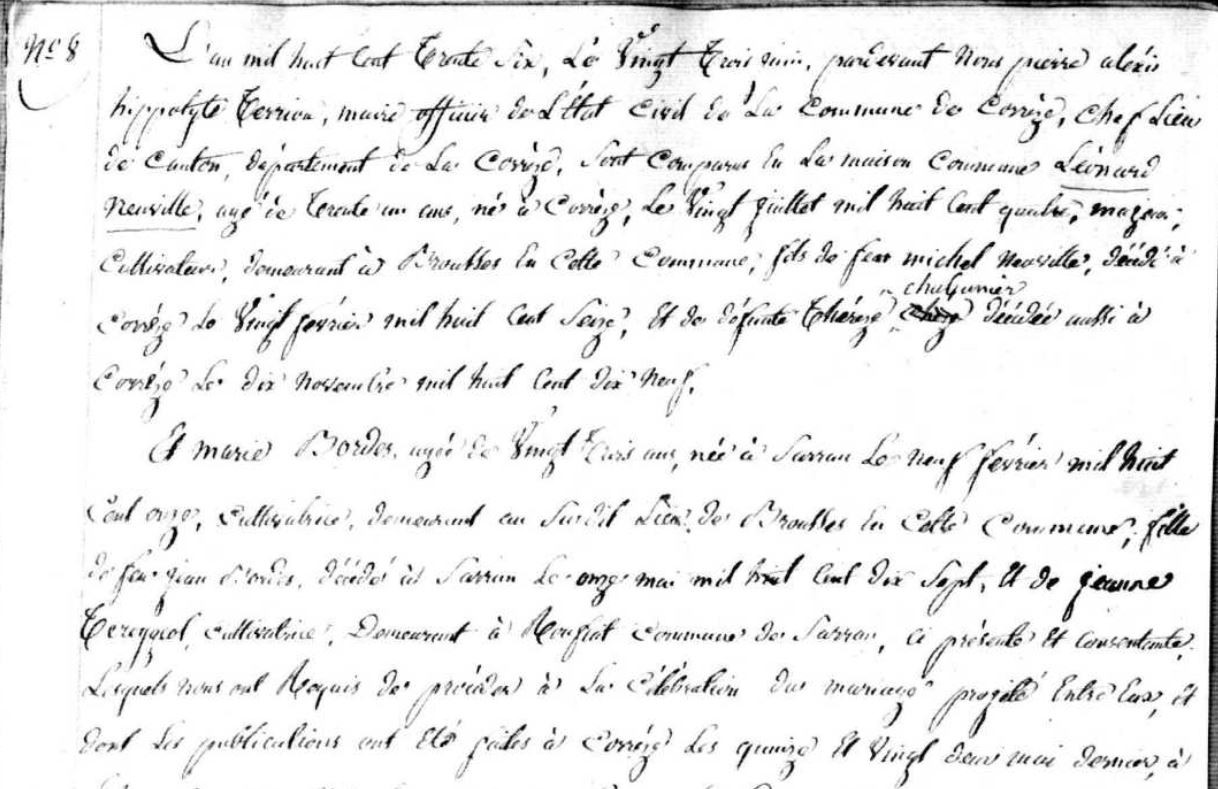 N° 8
L'an mil huit cent trente six, Le vingt trois juin, pardevant nous pierre aléxis
hippolyte Terriou, maire officier de L'état civil de La commune de Corrèze, chef Lieu
de canton, département de La Corrèze, sont comparus en La maison commune Léonard
neuville, agé de trente un ans, né à Corrèze, Le vingt juillet mil huit cent quatre, majeur,
cultivateur, demeurant à Brousses en cette commune, fils de feu michel neuville, décédé à
chalumier
corrèze Le vingt février mil huit cent seize, Et de défunte thérèze décédée aussi à
Corrèze Le dix novembre mil huit cent dix neuf.
Et marie Bordes, agée de vingt trois ans, née à Sarran Le neuf février mil huit
cent onze, cultivatrice, demeurant au susdit Lieu de Brousses en cette commune, fille
de feu jean Bordes, décédé à Sarran Le onze mai mil huit cent dix sept, Et de jeanne
Tereygeol, cultivatrice, demeurant à commune de Sarran, ci présente Et consentante,
Lesquels nous ont Requis de procéder à La célébration du mariage projeté Entre Eux, et
dont Les publications ont été faites à Corrèze Les quinze Et vingt deux mai dernier, à